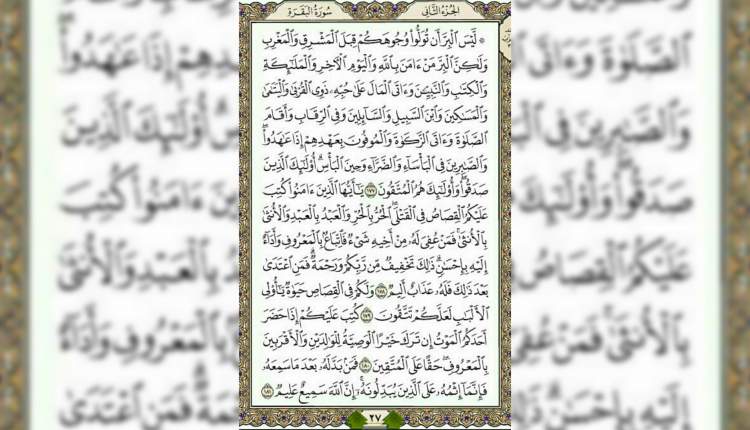 الجزء الثاني
سورة البقرة
۞ لَّيْسَ ٱلْبِرَّ أَن تُوَلُّوا۟ وُجُوهَكُمْ قِبَلَ ٱلْمَشْرِقِ وَٱلْمَغْرِبِ
وَلَـٰكِنَّ ٱلْبِرَّ مَنْ ءَامَنَ بِٱللَّهِ وَٱلْيَوْمِ ٱلْـَٔاخِرِ وَٱلْمَلَـٰٓئِكَةِ
وَٱلْكِتَـٰبِ وَٱلنَّبِيِّـۧنَ وَءَاتَى ٱلْمَالَ عَلَىٰ حُبِّهِۦ ذَوِى ٱلْقُرْبَىٰ وَٱلْيَتَـٰمَىٰ
وَٱلْمَسَـٰكِينَ وَٱبْنَ ٱلسَّبِيلِ وَٱلسَّآئِلِينَ وَفِى ٱلرِّقَابِ وَأَقَامَ
ٱلصَّلَوٰةَ وَءَاتَى ٱلزَّكَوٰةَ وَٱلْمُوفُونَ بِعَهْدِهِمْ إِذَا عَـٰهَدُوا۟ ۖ
وَٱلصَّـٰبِرِينَ فِى ٱلْبَأْسَآءِ وَٱلضَّرَّآءِ وَحِينَ ٱلْبَأْسِ ۗ أُو۟لَـٰٓئِكَ ٱلَّذِينَ
صَدَقُوا۟ ۖ وَأُو۟لَـٰٓئِكَ هُمُ ٱلْمُتَّقُونَ ١٧٧ يَـٰٓأَيُّهَا ٱلَّذِينَ ءَامَنُوا۟ كُتِبَ
عَلَيْكُمُ ٱلْقِصَاصُ فِى ٱلْقَتْلَى ۖ ٱلْحُرُّ بِٱلْحُرِّ وَٱلْعَبْدُ بِٱلْعَبْدِ وَٱلْأُنثَىٰ
بِٱلْأُنثَىٰ ۚ فَمَنْ عُفِىَ لَهُۥ مِنْ أَخِيهِ شَىْءٌ فَٱتِّبَاعٌۢ بِٱلْمَعْرُوفِ وَأَدَآءٌ
إِلَيْهِ بِإِحْسَـٰنٍ ۗ ذَٰلِكَ تَخْفِيفٌ مِّن رَّبِّكُمْ وَرَحْمَةٌ ۗ فَمَنِ ٱعْتَدَىٰ
بَعْدَ ذَٰلِكَ فَلَهُۥ عَذَابٌ أَلِيمٌ ١٧٨ وَلَكُمْ فِى ٱلْقِصَاصِ حَيَوٰةٌ يَـٰٓأُو۟لِى
ٱلْأَلْبَـٰبِ لَعَلَّكُمْ تَتَّقُونَ ١٧٩ كُتِبَ عَلَيْكُمْ إِذَا حَضَرَ
أَحَدَكُمُ ٱلْمَوْتُ إِن تَرَكَ خَيْرًا ٱلْوَصِيَّةُ لِلْوَٰلِدَيْنِ وَٱلْأَقْرَبِينَ
بِٱلْمَعْرُوفِ ۖ حَقًّا عَلَى ٱلْمُتَّقِينَ ١٨٠ فَمَنۢ بَدَّلَهُۥ بَعْدَ مَا سَمِعَهُۥ
فَإِنَّمَآ إِثْمُهُۥ عَلَى ٱلَّذِينَ يُبَدِّلُونَهُۥٓ ۚ إِنَّ ٱللَّهَ سَمِيعٌ عَلِيمٌ ١٨١
٢٧